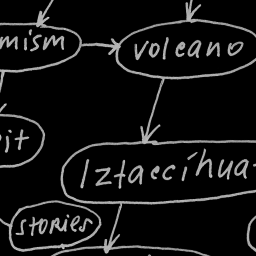 mism
volcano
it
Iztaccihua
stories